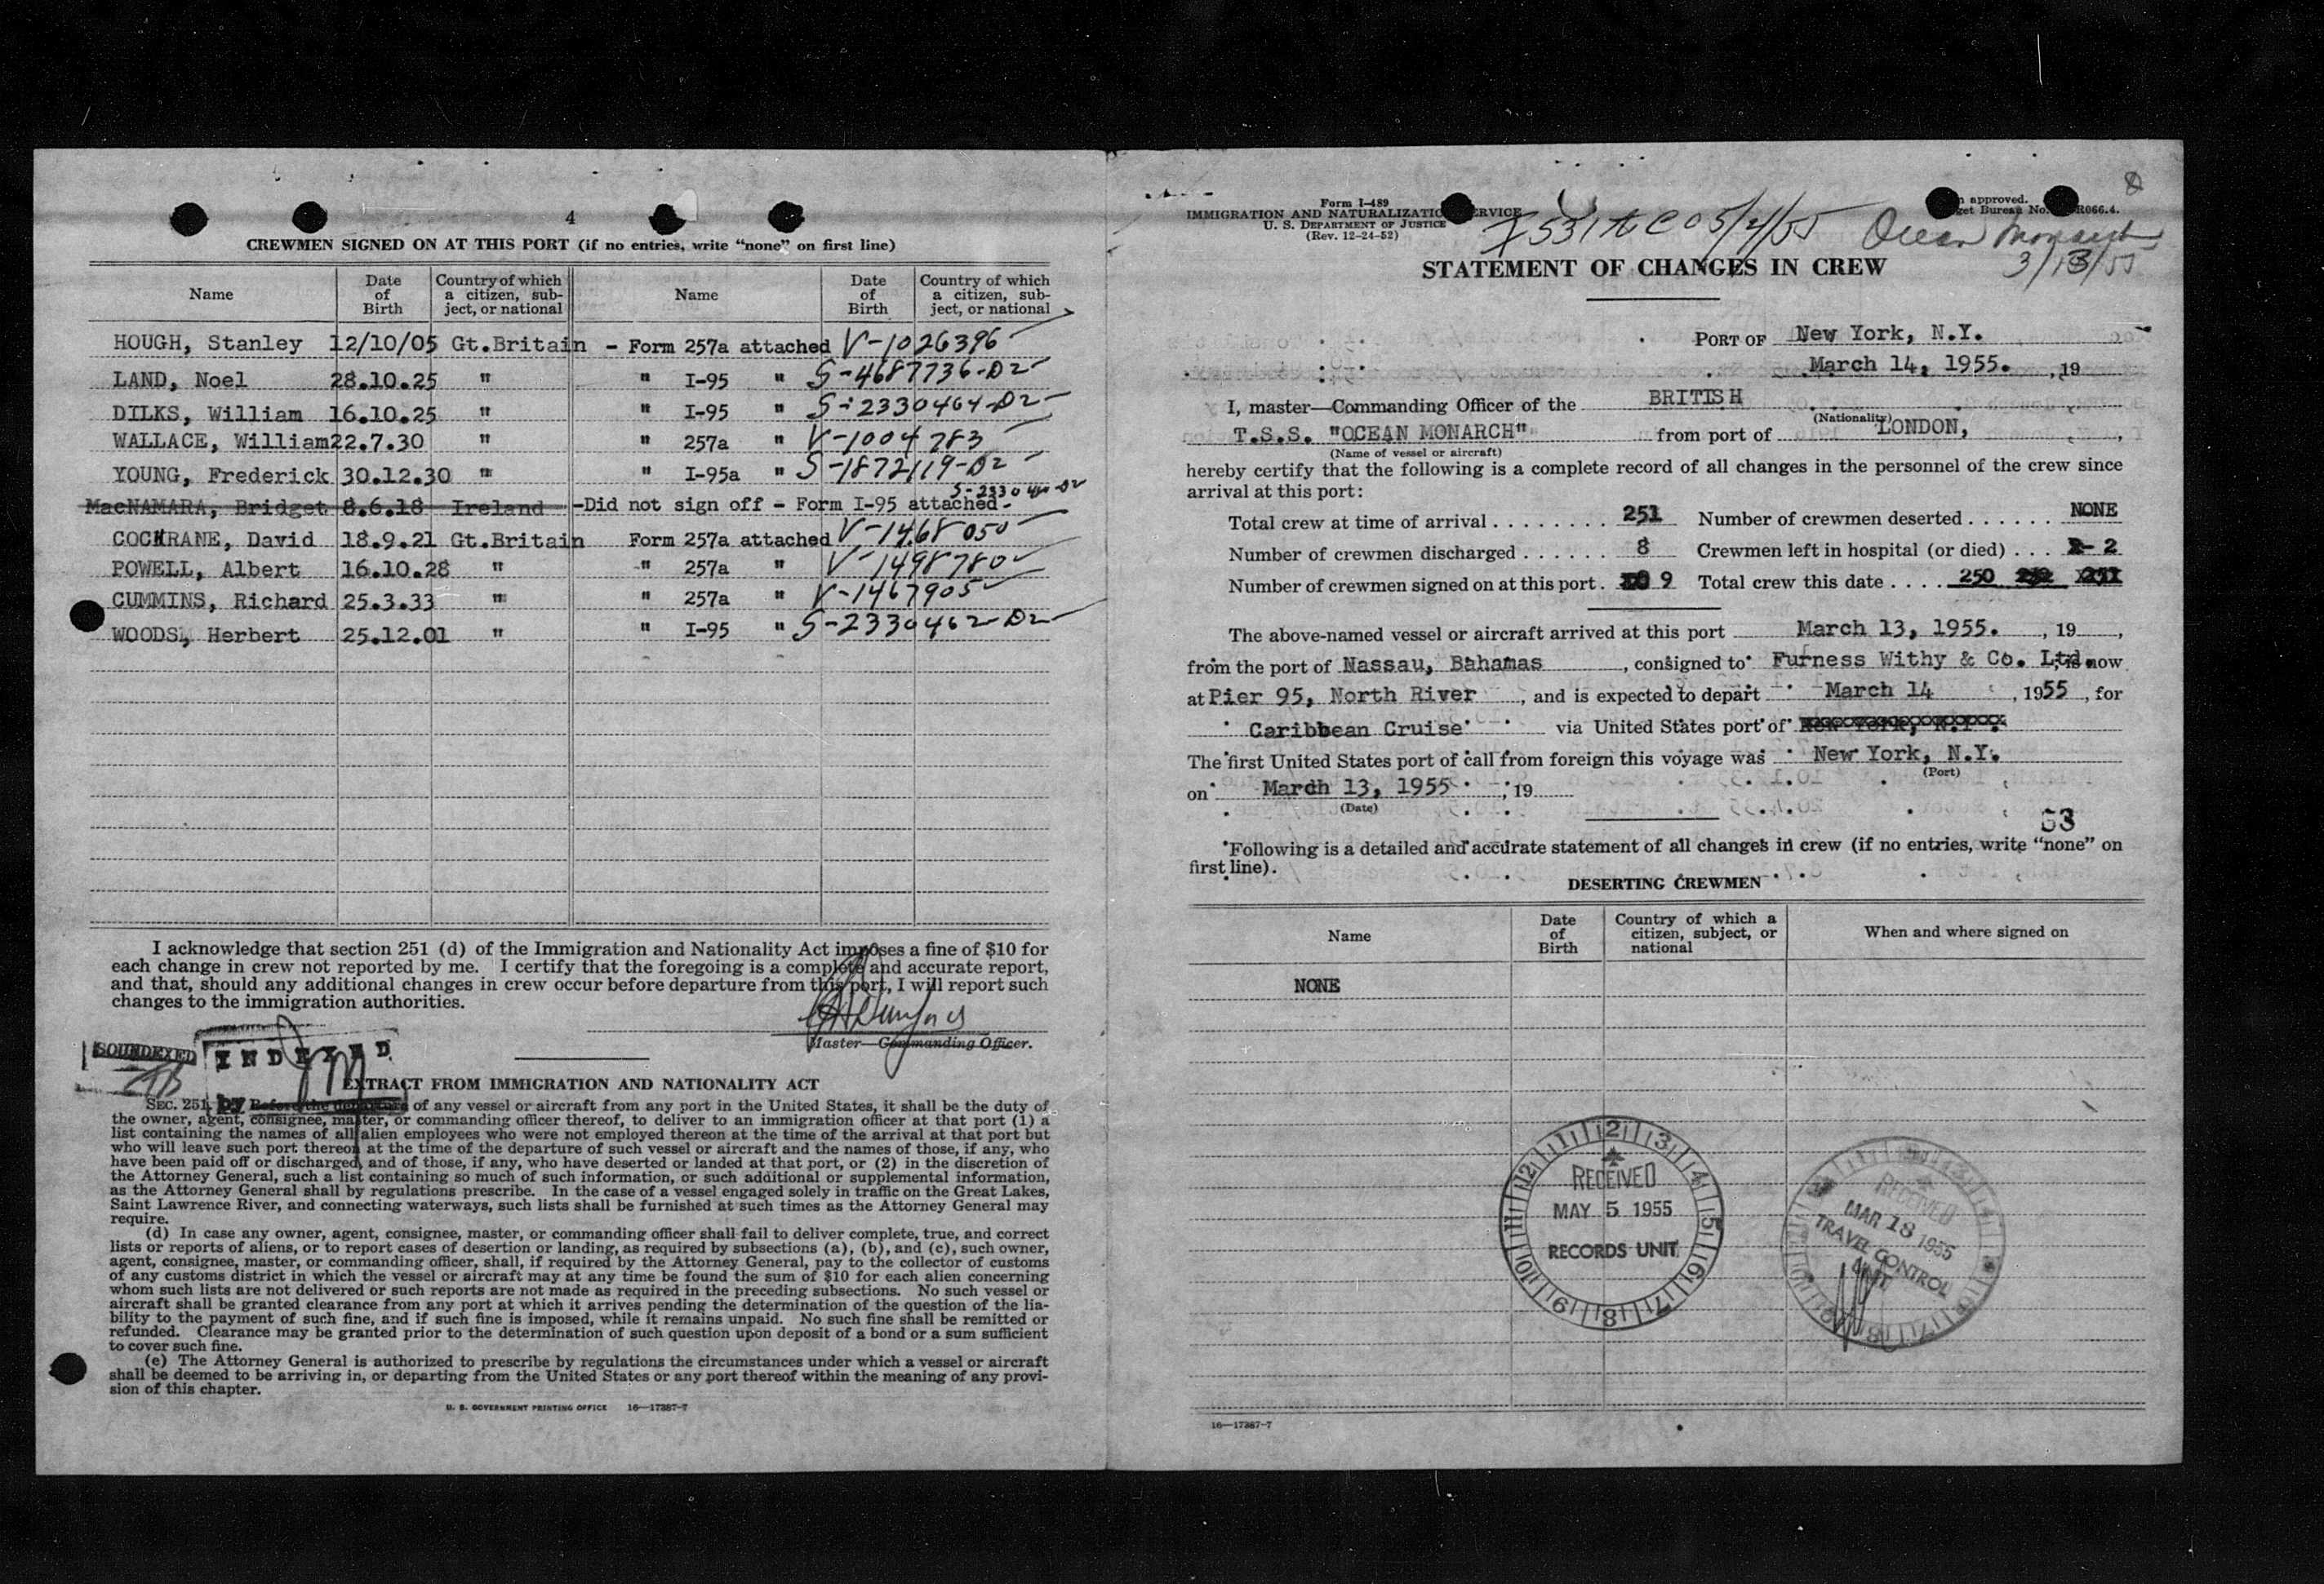 4
CREWMEN SIGNED ON AT THIS PORT (if no entries, write "none" on first line)
Name | Date of Birth | Country of which a citizen, subject, or national | Name | Date of Birth | Country of which a citizen, subject, or national
HOUGH, Stanley 12/10/05 Gt.Britain - Form 257a attached V-1026396
LAND, Noel 28.10.25 " " I-95 " S-4687736-D2
DILKS, William 16.10.25 " " I-95 " S-2330464-D2
WALLACE, William 22.7.30 " " 257a " V-1004783
YOUNG, Frederick 30.12.30 " " I-95a " S-1872119-D2
MacNAMARA, Bridget 8.6.18 Ireland -Did not sign off - Form I-95 attached-
COCHRANE, David 18.9.21 Gt.Britain Form 257a attached V-1468050
POWELL, Albert 16.10.28 " " 257a " V-1498780
CUMMINS, Richard 25.3.33 " " 257a " V-1467905
WOODS, Herbert 25.12.01 " " I-95 " S-2330462-D2
I acknowledge that section 251 (d) of the Immigration and Nationality Act imposes a fine of $10 for
each change in crew not reported by me. I certify that the foregoing is a complete and accurate report,
and that, should any additional changes in crew occur before departure from this port, I will report such
changes to the immigration authorities.
Master—Commanding Officer.
SOUNDEXED
INDEXED
by
EXTRACT FROM IMMIGRATION AND NATIONALITY ACT
SEC. 251. Before the departure of any vessel or aircraft from any port in the United States, it shall be the duty of
the owner, agent, consignee, master, or commanding officer thereof, to deliver to an immigration officer at that port (1) a
list containing the names of all alien employees who were not employed thereon at the time of the arrival at that port but
who will leave such port thereon at the time of the departure of such vessel or aircraft and the names of those, if any, who
have been paid off or discharged, and of those, if any, who have deserted or landed at that port, or (2) in the discretion of
the Attorney General, such a list containing so much of such information, or such additional or supplemental information,
as the Attorney General shall by regulations prescribe. In the case of a vessel engaged solely in traffic on the Great Lakes,
Saint Lawrence River, and connecting waterways, such lists shall be furnished at such times as the Attorney General may
require.
(d) In case any owner, agent, consignee, master, or commanding officer shall fail to deliver complete, true, and correct
lists or reports of aliens, or to report cases of desertion or landing, as required by subsections (a), (b), and (c), such owner,
agent, consignee, master, or commanding officer, shall, if required by the Attorney General, pay to the collector of customs
of any customs district in which the vessel or aircraft may at any time be found the sum of $10 for each alien concerning
whom such lists are not delivered or such reports are not made as required in the preceding subsections. No such vessel or
aircraft shall be granted clearance from any port at which it arrives pending the determination of the question of the lia-
bility to the payment of such fine, and if such fine is imposed, while it remains unpaid. No such fine shall be remitted or
refunded. Clearance may be granted prior to the determination of such question upon deposit of a bond or a sum sufficient
to cover such fine.
(e) The Attorney General is authorized to prescribe by regulations the circumstances under which a vessel or aircraft
shall be deemed to be arriving in, or departing from the United States or any port thereof within the meaning of any provi-
sion of this chapter.
U. S. GOVERNMENT PRINTING OFFICE 16—17387-7
8
Form I-489
IMMIGRATION AND NATURALIZATION SERVICE
U. S. DEPARTMENT OF JUSTICE
(Rev. 12-24-52)
approved.
Bureau No. R066.4.
Ocean Monarch
3/13/55
STATEMENT OF CHANGES IN CREW
PORT OF New York, N.Y.
March 14, 1955. , 19
I, master—Commanding Officer of the BRITISH
(Nationality)
T.S.S. "OCEAN MONARCH" from port of LONDON, ,
(Name of vessel or aircraft)
hereby certify that the following is a complete record of all changes in the personnel of the crew since
arrival at this port:
Total crew at time of arrival . . . . . . . . 251 Number of crewmen deserted . . . . . . NONE
Number of crewmen discharged . . . . . . 8 Crewmen left in hospital (or died) . . . 2
Number of crewmen signed on at this port . 9 Total crew this date . . . . 250 252 251
The above-named vessel or aircraft arrived at this port March 13, 1955. , 19 ,
from the port of Nassau, Bahamas , consigned to Furness Withy & Co. Ltd. , is now
at Pier 95, North River , and is expected to depart March 14 , 1955 , for
Caribbean Cruise via United States port of New York, N.Y.
The first United States port of call from foreign this voyage was New York, N.Y.
(Port)
on March 13, 1955 , 19
(Date)
53
Following is a detailed and accurate statement of all changes in crew (if no entries, write "none" on
first line).
DESERTING CREWMEN
Name | Date of Birth | Country of which a citizen, subject, or national | When and where signed on
NONE
RECEIVED
MAY 5 1955
RECORDS UNIT
RECEIVED
MAR 18 1955
TRAVEL CONTROL
UNIT
16—17387-7